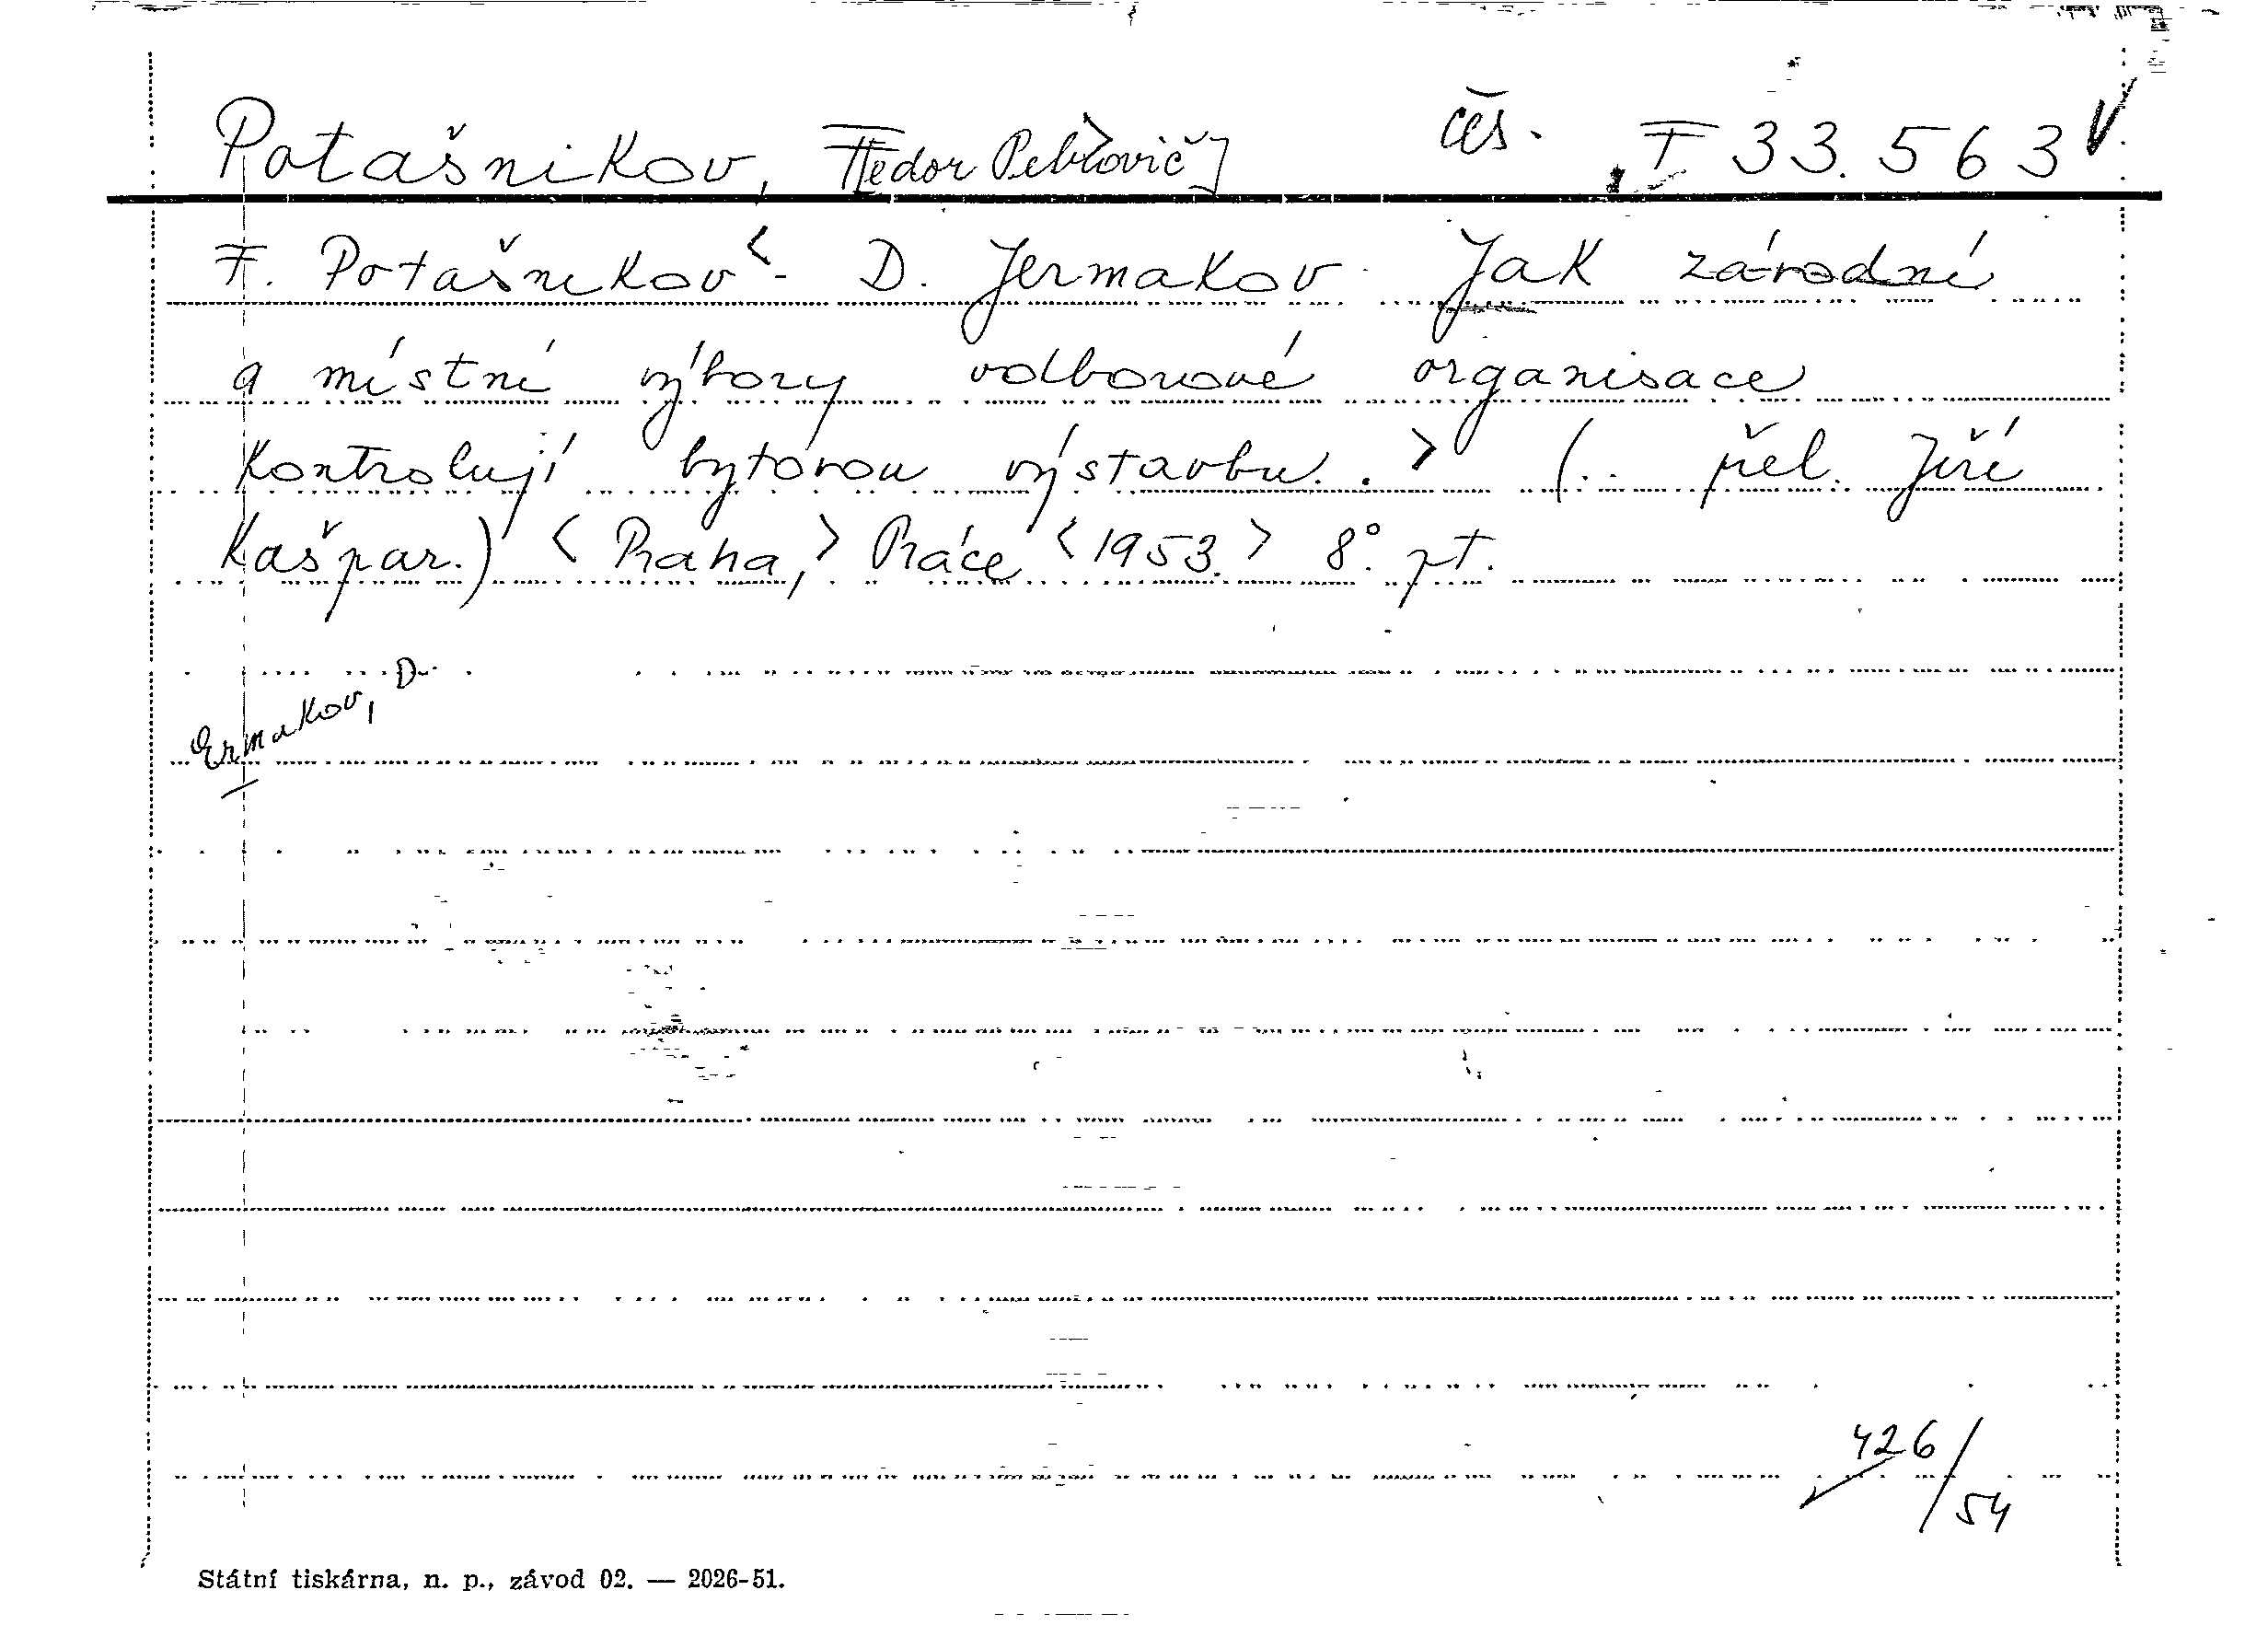 Potašnikov, F[edor Petrovič] čes. F 33.563
F. Potašnikov < - D. Jermakov. Jak závodní
a místní výbory odborové organisace
kontrolují bytovou výstavbu. > (.. přel. Jiří
Kašpar.) < Praha, > Práce < 1953. > 8°. pt.
Ermakov, D.
426/54
Státní tiskárna, n. p., závod 02. — 2026-51.